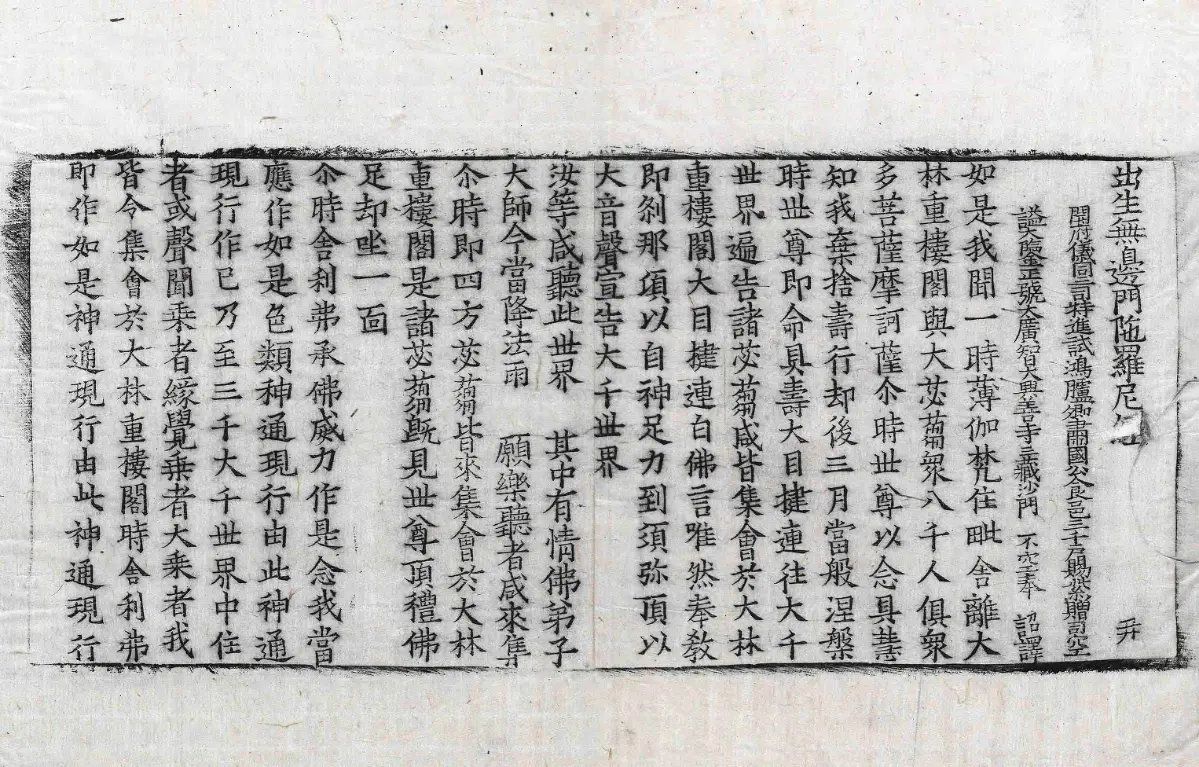 出生無邊門陁羅尼經
開府儀同三司特進試鴻臚卿肅國公食邑三千戶賜紫贈司空
謚大鑒正號大廣智大興善寺三藏沙門 不空奉 詔譯
如是我聞一時薄伽梵住毗舍離大
林重樓閣與大苾蒭衆八千人俱衆
多菩薩摩訶薩尒時世尊以念具慧
知我棄捨壽行却後三月當般涅槃
時世尊即命具壽大目揵連往大千
世界遍告諸苾蒭咸皆集會於大林
重樓閣大目揵連白佛言唯然奉教
即刹那項以自神足力到須弥頂以
大音聲宣告大千世界
汝等咸聽此世界 其中有情佛弟子
大師今當降法雨 願樂聽者咸來集
尒時即四方苾蒭皆來集會於大林
重樓閣是諸苾蒭既見世尊頂禮佛
足却坐一面
尒時舍利弗承佛威力作是念我當
應作如是色類神通現行由此神通
現行作已乃至三千大千世界中住
者或聲聞乘者緣覺乘者大乘者我
皆令集會於大林重樓閣時舍利弗
即作如是神通現行由此神通現行